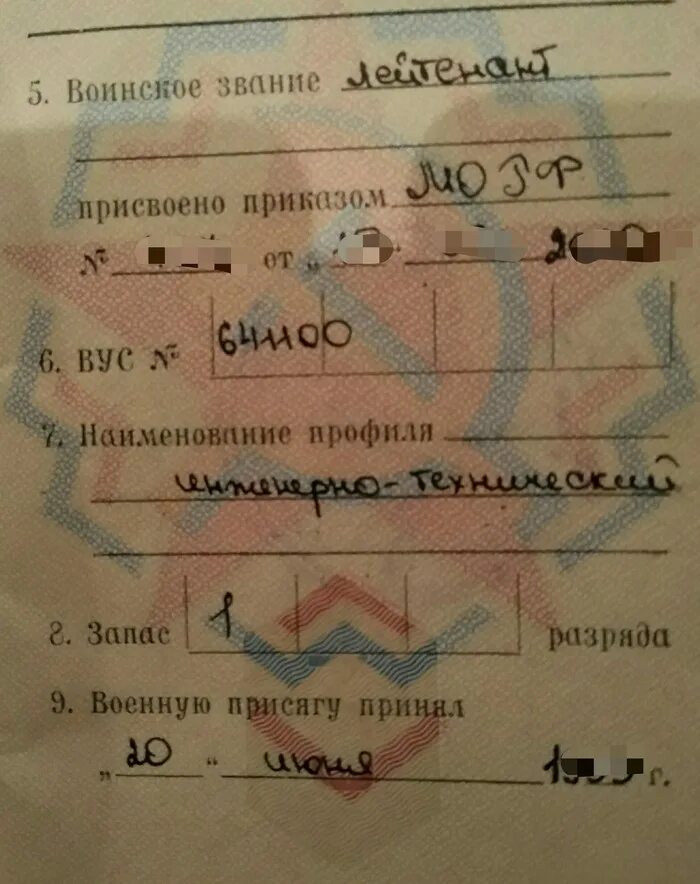 5. Воинское звание лейтенант
присвоено приказом МО РФ
№ от „
6. ВУС № 641100
7. Наименование профиля
инженерно-технический
8. Запас 1 разряда
9. Военную присягу принял
„20 “ июня г.